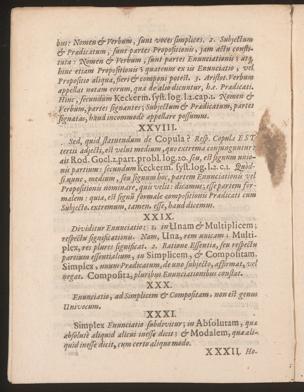 bus: Nomen & Verbum, sunt voces simplices. 2. Subjectum
& Prædicatum, sunt partes Propositionis, jam actu consti-
tutæ: Nomen & Verbum, sunt partes Enunciationis; atq;
hinc etiam Propositionis; quatenus ex iis Enunciatio, vel
Propositio aliqua, fieri & componi potest. 3. Aristot. Verbum
appellat notam eorum, quæ de alio dicuntur, h.e. Prædicati.
Hinc, secundum Keckerm. syst. log. l. 2. cap. 1. Nomen &
Verbum, partes signantes; Subjectum & Prædicatum, partes
signatas, haud incommodè appellare possumus.
XXVIII.
Sed, quid statuendum de Copula? Resp. Copula EST
tertiò adjecti, est velut medium, quo extrema conjunguntur:
ait Rod. Gocl. 2. part. probl. log. 10. seu, est signum unio-
nis partium; secundum Keckerm. syst. log. l. 2. c. 1. Quid-
si, nunc, medium, seu signum hoc, partem Enunciationis vel
Propositionis nominare, quis velit: dicamus; esse partem for-
malem: quia, est signum formalis compositionis Prædicati cum
Subjecto. extremum, tamen, esse, haud dicemus.
XXIX.
Dividitur Enunciatio; 1. in Unam & Multiplicem;
respectu significationis. Nam, Una, rem unicam: Multi-
plex, res plures significat. 2. Ratione Essentiæ, seu respectu
partium essentialium, in Simplicem, & Compositam.
Simplex, unum Prædicatum, de uno subjecto, affirmat, vel
negat. Composita, pluribus Enunciationibus constat.
XXX.
Enunciatio, ad Simplicem & Compositam, non est genus
Univocum.
XXXI.
Simplex Enunciatio subdividitur; in Absolutam, quæ
absolutè aliquid alicui inesse dicit; & Modalem, quæ ali-
quid inesse dicit, cum certo aliquo modo.
XXXII. Ho-